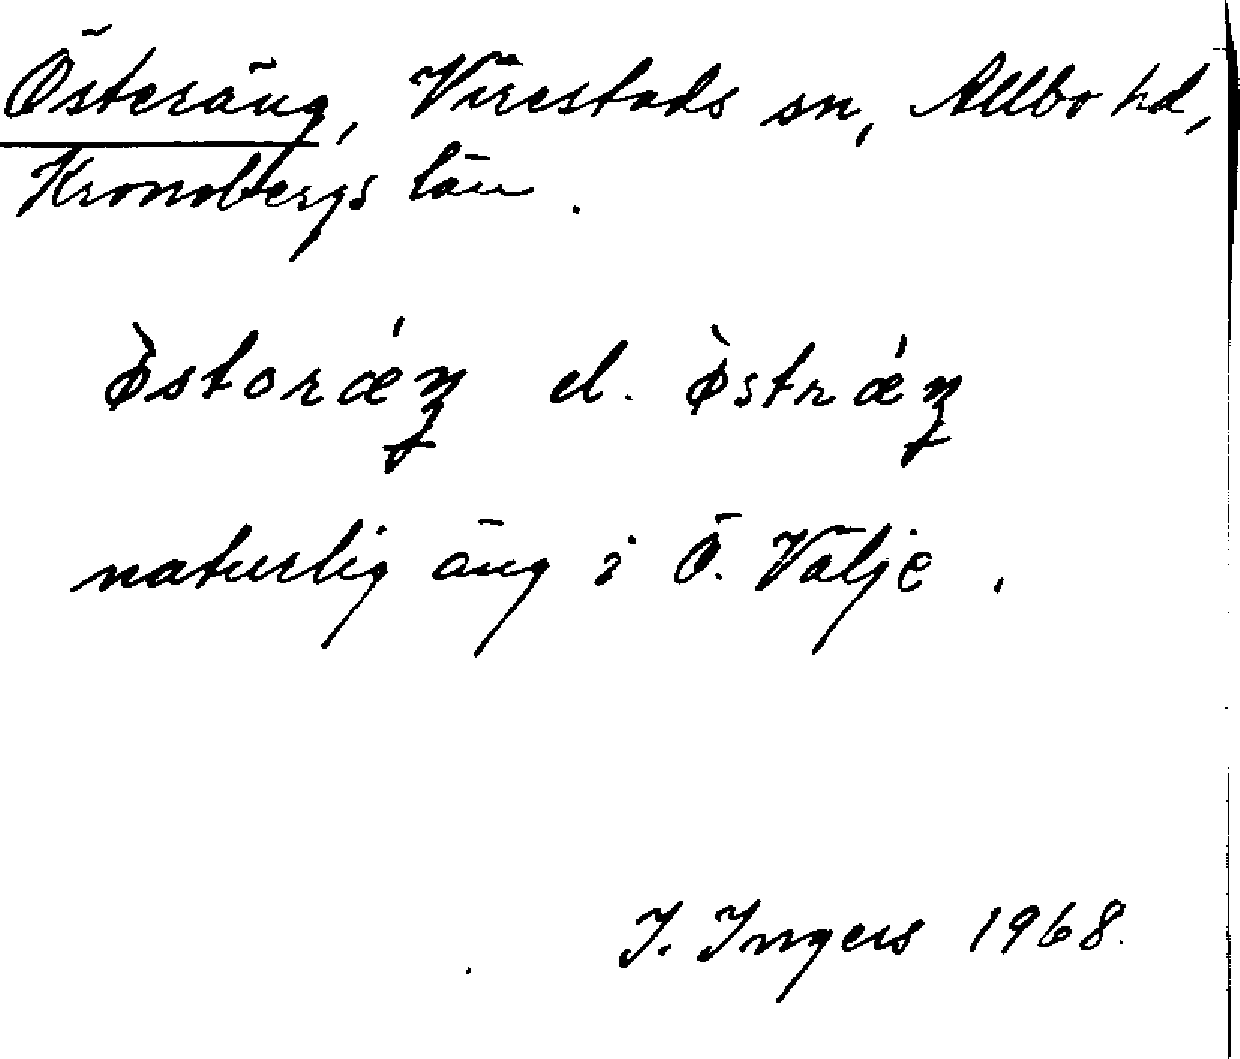 Österäng, Virestads sn, Allbo hd,
Kronobergs län.
ø̀storǽŋ el. ø̀strǽŋ
naturlig äng i Ö. Välje.
I. Ingers 1968.